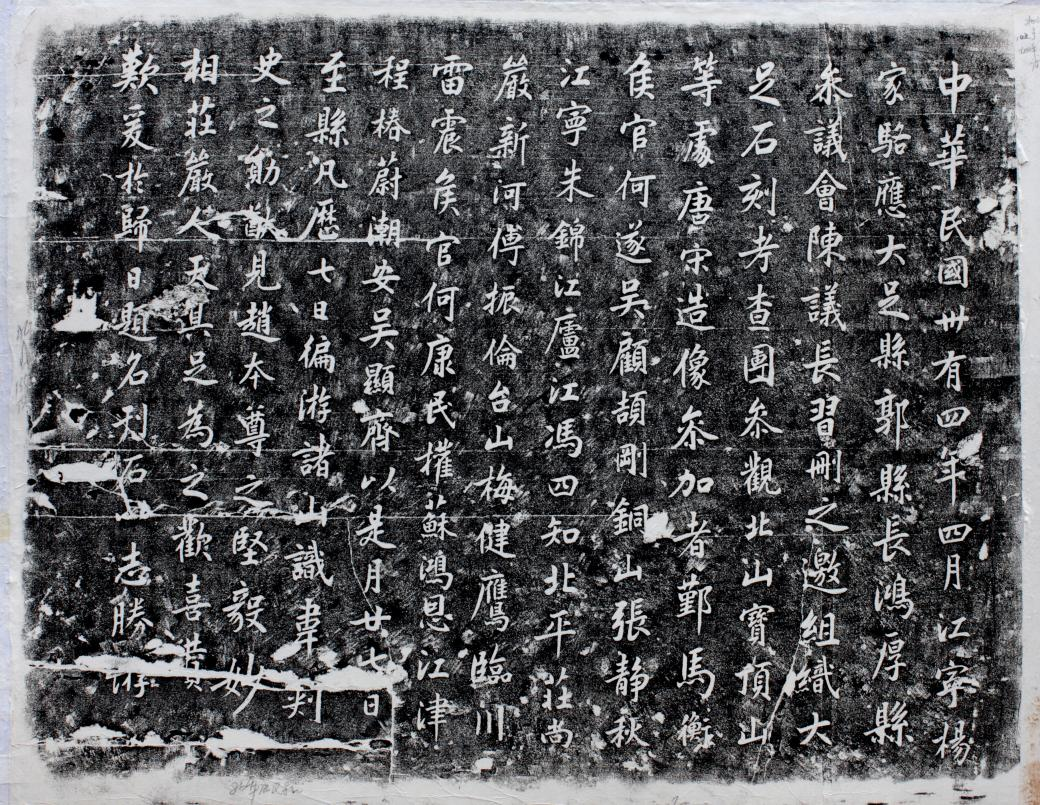 中華民國卅有四年四月江寧楊
家駱應大足縣郭縣長鴻厚縣
叅議會陳議長習刪之邀組織大
足石刻考查團叅觀北山寶頂山
等處唐宋造像叅加者鄞馬衡
侯官何遂吳顧頡剛銅山張静秋
江寧朱錦江廬江馮四知北平莊尚
嚴新河傅振倫台山梅健鷹臨川
雷震侯官何康民權蘇鴻恩江津
程椿蔚潮安吳顯齊以是月廿七日
至縣凡歷七日徧游諸山識韋刺
史之勛猷見趙本尊之堅毅妙
相莊嚴人天具足為之歡喜讚
歎爰於歸日題名刊石以志勝游